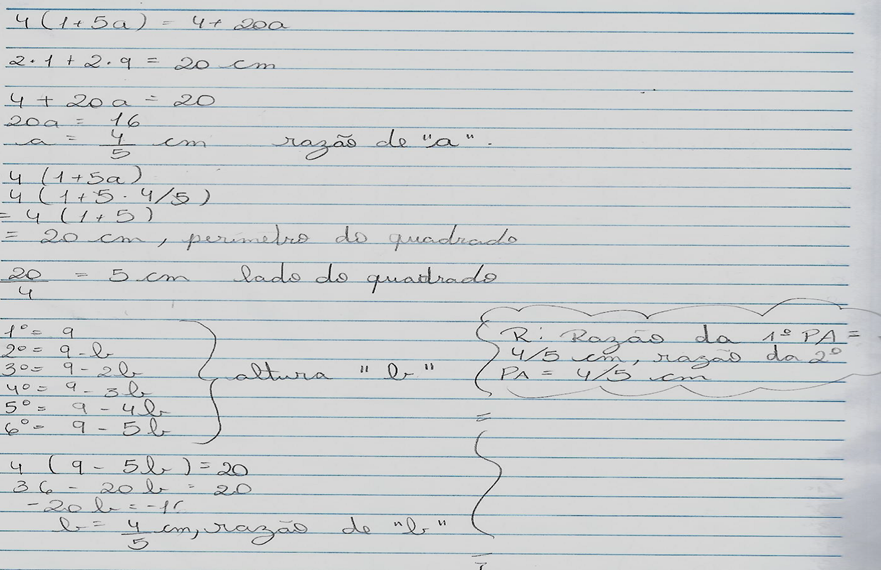 4 (1+5a) = 4+ 20a
2·1 + 2·9 = 20 cm
4 + 20a = 20
20a = 16
a = 4/5 cm razão de "a".
4 (1+5a)
4 (1+5·4/5)
= 4 (1+5)
= 20 cm, perímetro do quadrado
20/4 = 5 cm lado do quadrado
1º= 9
2º= 9-b
3º= 9-2b
4º= 9-3b
5º= 9-4b
6º= 9-5b
altura "b"
4 (9-5b)=20
36-20b=20
-20b=-16
b= 4/5 cm, razão de "b"
R: Razão da 1º PA =
4/5 cm, razão da 2º
PA = 4/5 cm
=